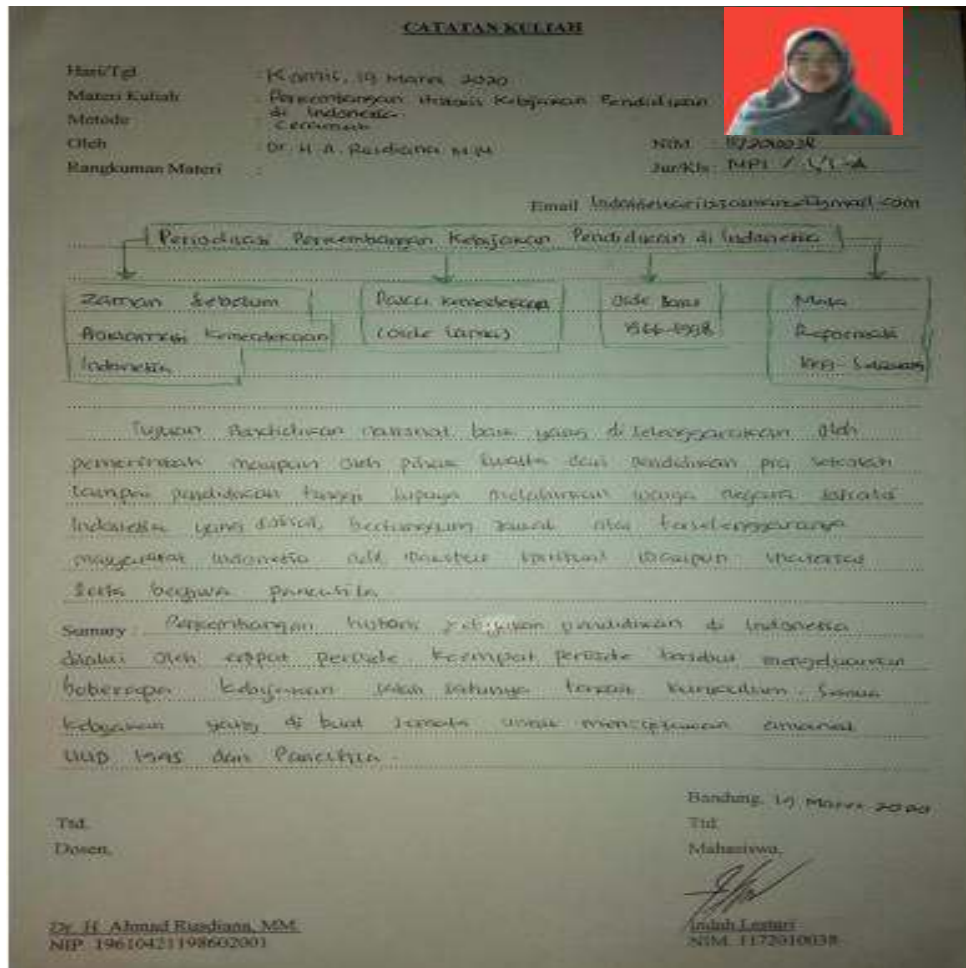 CATATAN KULIAH
Hari/Tgl : Kamis, 19 Maret 2020
Materi Kuliah : Perkembangan Historis Kebijakan Pendidikan
di Indonesia
Metode : Ceramah
Oleh : Dr. H. A. Rusdiana M.M
NIM : 1172010038
Rangkuman Materi :
Jur/Kls : MPI / VI-A
Email
Periodisasi Perkembangan Kebijakan Pendidikan di Indonesia
Zaman Sebelum
Kemerdekaan
Indonesia
Pasca Kemerdekaan
(orde lama)
Orde Baru
1966-1998
Masa
Reformasi
Tujuan Pendidikan nasional baik yang di selenggarakan oleh
pemerintah maupun oleh pihak swasta dari pendidikan pra sekolah
sampai pendidikan tinggi supaya melahirkan warga negara sosialis
Indonesia yang sosial, bertanggung jawab atas terselenggaranya
masyarakat Indonesia adil makmur spiritual maupun material
serta berjiwa pancasila
Sumary : Perkembangan historis kebijakan pendidikan di Indonesia
dilalui oleh empat periode. Keempat periode tersebut mengeluarkan
beberapa kebijakan salah satunya terkait kurikulum. Semua
kebijakan yang di buat semata untuk menciptakan amanat
UUD 1945 dan Pancasila.
Bandung, 19 Maret 2020
Ttd.
Dosen,
Ttd.
Mahasiswa,
Dr. H. Ahmad Rusdiana, MM.
NIP. 19610421198602001
Indah Lestari
NIM. 1172010038